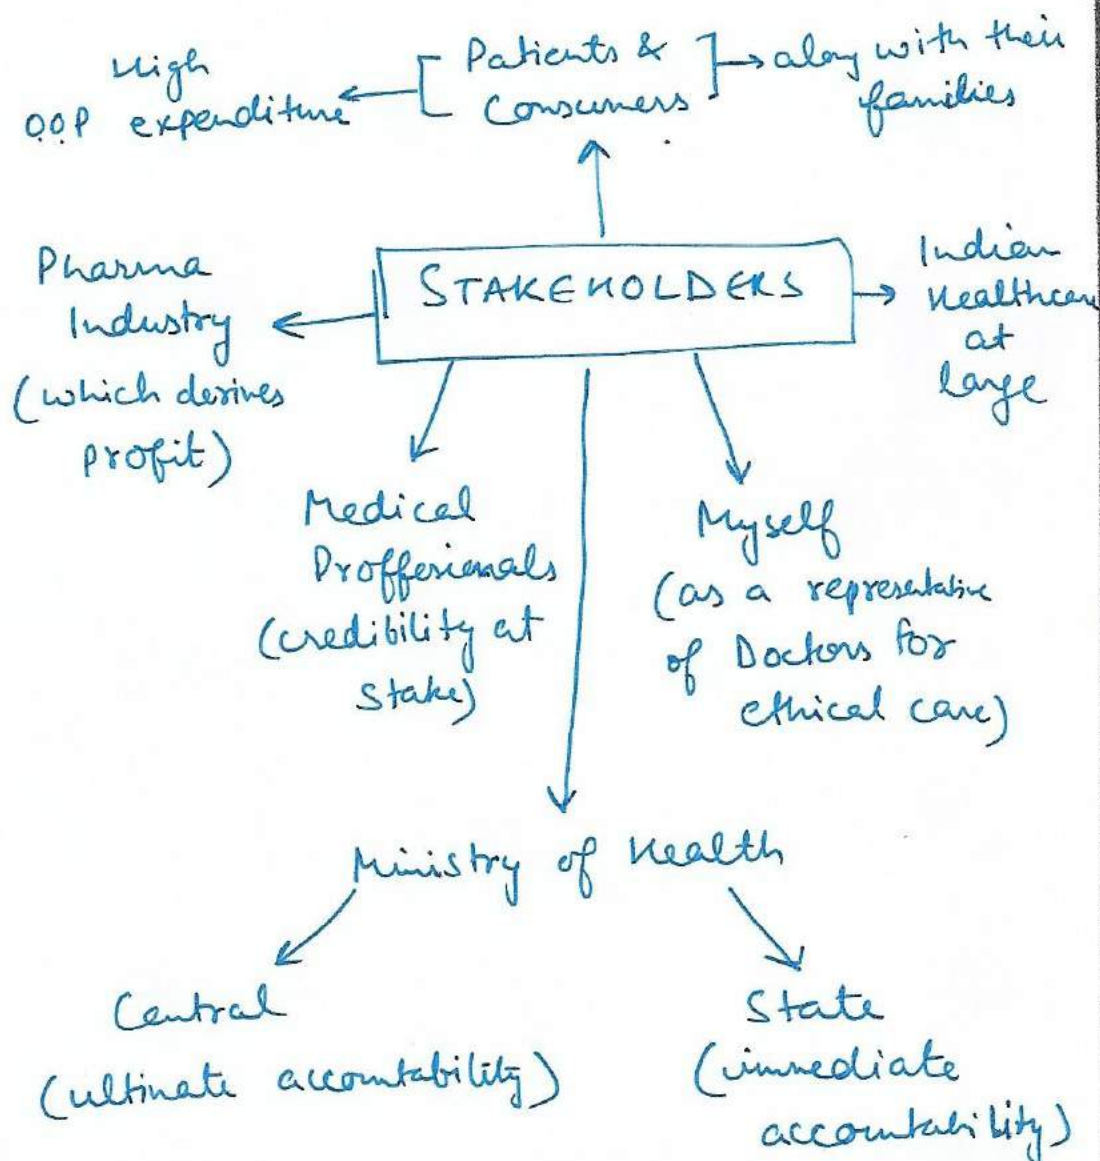 High
OOP expenditure
[Patients &
Consumers]
along with their
families
STAKEHOLDERS
Pharma
Industry
(which derives
profit)
Indian
Healthcare
at
large
Medical
Proffesionals
(credibility at
stake)
Myself
(as a representative
of Doctors for
ethical care)
Ministry of Health
Central
(ultimate accountability)
State
(immediate
accountability)